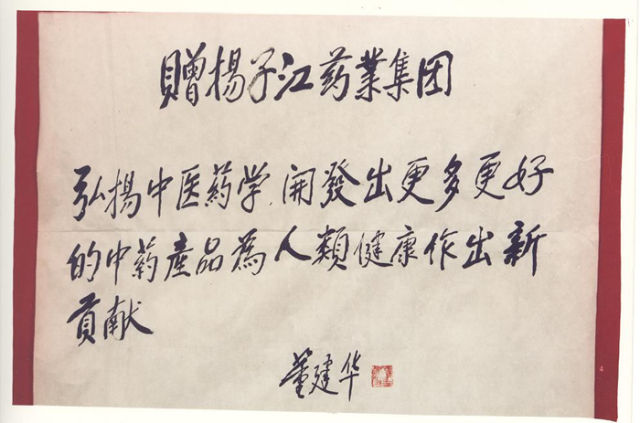 贈揚子江药業集团
弘揚中医药学,開發出更多更好
的中药產品為人類健康作出新
貢献
董建华